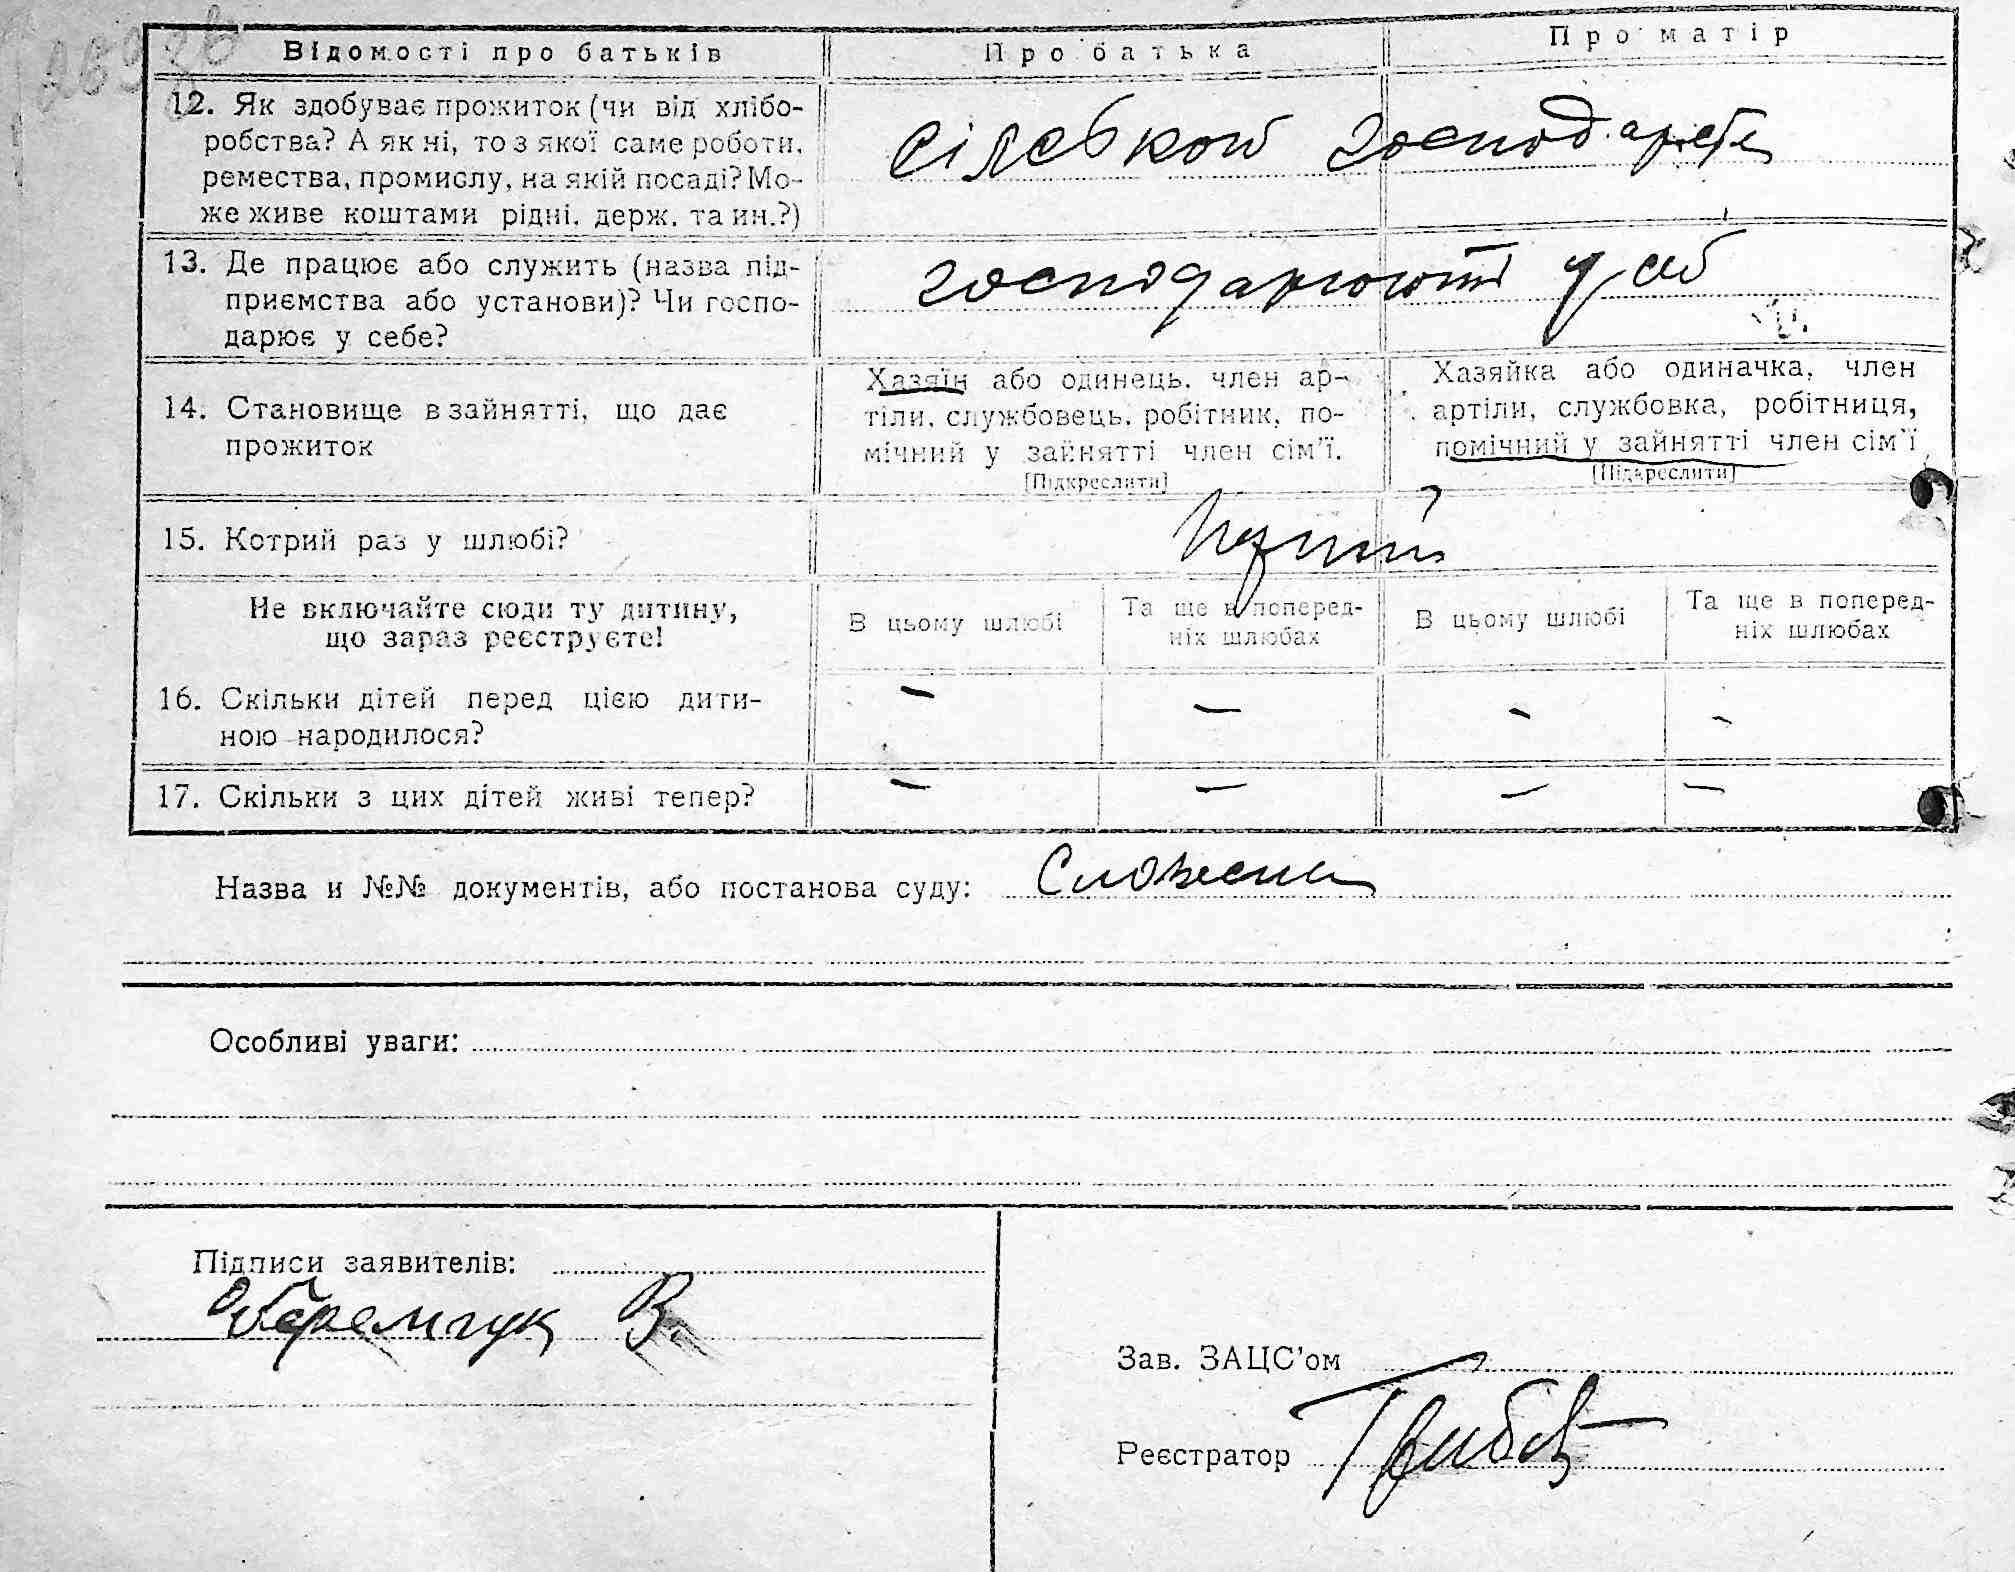 Відомості про батьків Про батька Про матір
12. Як здобуває прожиток (чи від хлібо-
робства? А як ні, то з якої саме роботи,
ремества, промислу, на якій посаді? Мо-
же живе коштами рідні, держ. та ин.?)
сілською господарств
13. Де працює або служить (назва під-
приємства або установи)? Чи госпо-
дарює у себе?
господарюють у себ
14. Становище в зайнятті, що дає
прожиток
Хазяїн або одинець, член ар-
тіли, службовець, робітник, по-
мічний у зайнятті член сім'ї.
[Підкреслити]
Хазяйка або одиначка, член
артіли, службовка, робітниця,
помічний у зайнятті член сім'ї
[Підкреслити]
15. Котрий раз у шлюбі?
Перший
Не включайте сюди ту дитину,
що зараз реєструєте!
В цьому шлюбі
Та ще в поперед-
ніх шлюбах
В цьому шлюбі
Та ще в поперед-
ніх шлюбах
16. Скільки дітей перед цією дити-
ною народилося?
– – – –
17. Скільки з цих дітей живі тепер?
– – – –
Назва и №№ документів, або постанова суду: Словесна
Особливі уваги:
Підписи заявителів:
Яремчук В.
Зав. ЗАЦС'ом
Реєстратор